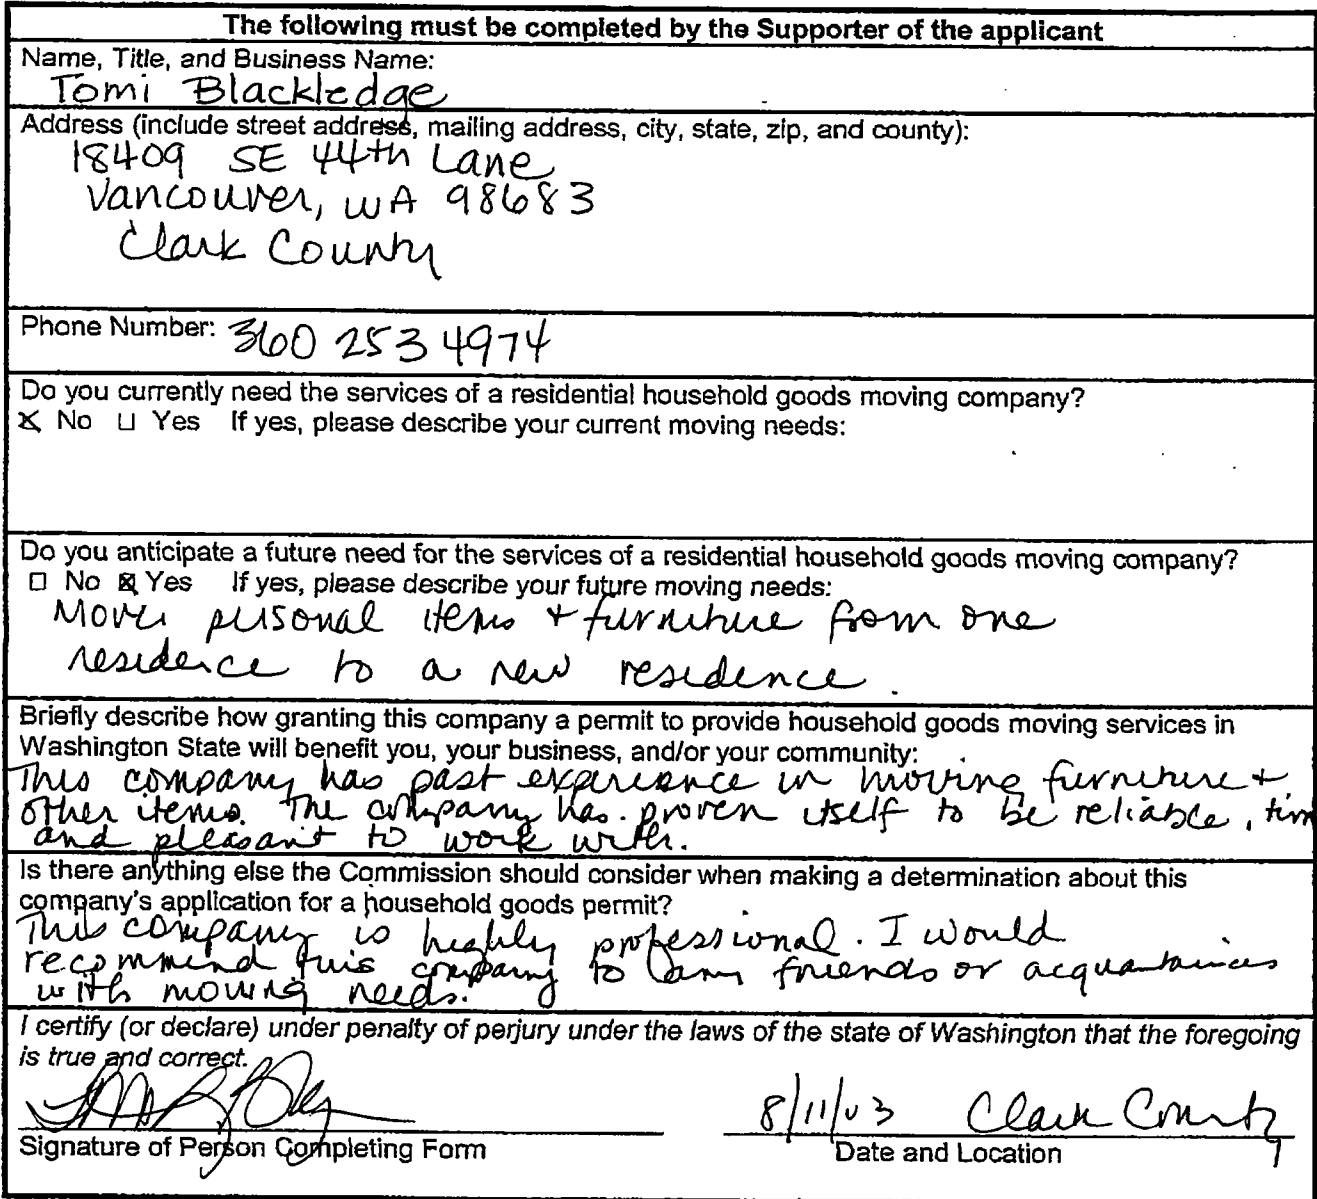 The following must be completed by the Supporter of the applicant
Name, Title, and Business Name:
Tomi Blackledge
Address (include street address, mailing address, city, state, zip, and county):
18409 SE 44th Lane
Vancouver, WA 98683
Clark County
Phone Number: 360 253 4974
Do you currently need the services of a residential household goods moving company?
☒ No ☐ Yes If yes, please describe your current moving needs:
Do you anticipate a future need for the services of a residential household goods moving company?
☐ No ☒ Yes If yes, please describe your future moving needs:
Move personal items + furniture from one
residence to a new residence.
Briefly describe how granting this company a permit to provide household goods moving services in
Washington State will benefit you, your business, and/or your community:
This company has past experience in moving furniture +
other items. The company has proven itself to be reliable, tim
and pleasant to work with.
Is there anything else the Commission should consider when making a determination about this
company's application for a household goods permit?
This company is highly professional. I would
recommend this company to any friends or acquantainces
with moving needs.
I certify (or declare) under penalty of perjury under the laws of the state of Washington that the foregoing
is true and correct.
8/11/03 Clark County
Signature of Person Completing Form Date and Location